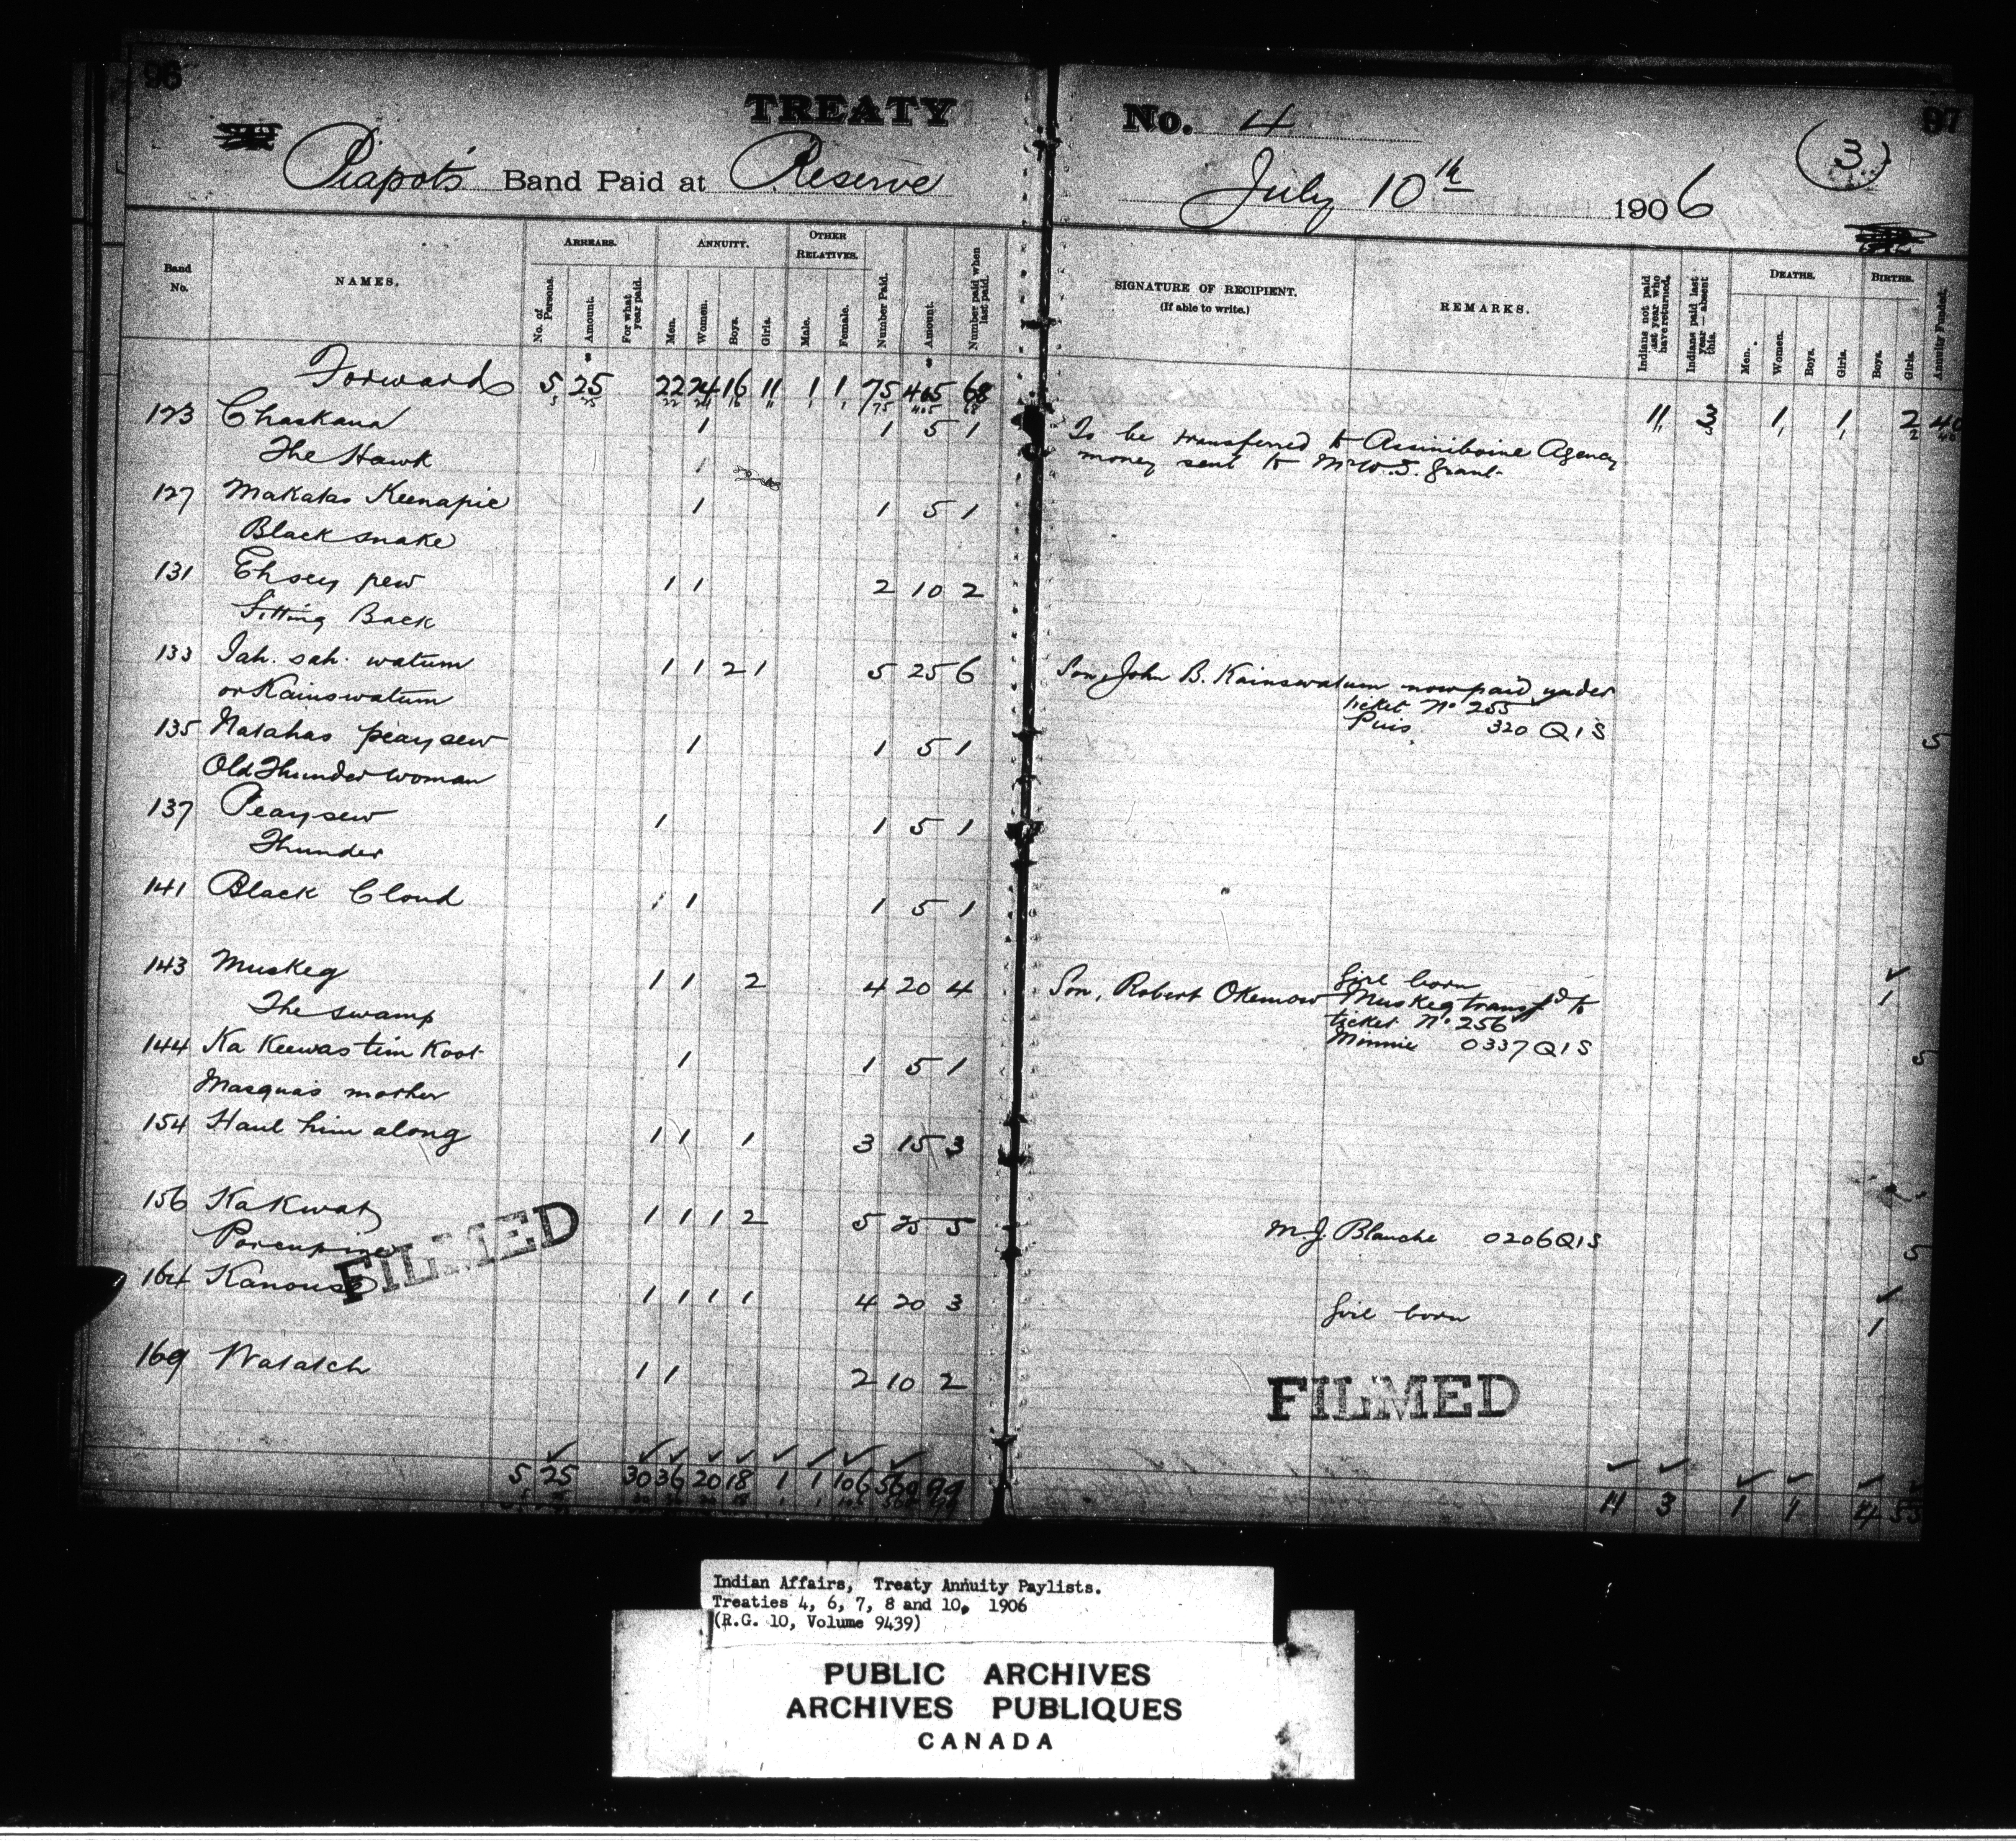 96
TREATY No. 4
97
(3)
Piapot's Band Paid at Reserve July 10th 1906
Band No.
NAMES.
ARREARS.
No. of Persons.
Amount.
For what year paid.
ANNUITY.
Men.
Women.
Boys.
Girls.
OTHER RELATIVES.
Male.
Female.
Number Paid.
Amount.
Number paid when last paid.
SIGNATURE OF RECIPIENT.
(If able to write.)
REMARKS.
Indians not paid last year who have returned.
Indians paid last year — absent this.
DEATHS.
Men.
Women.
Boys.
Girls.
BIRTHS.
Boys.
Girls.
Annuity Funded.
Forward 5 25 22 24 16 11 1 1 75 405 68 11 3 1 1 2 40
123 Chaskana 1 1 5 1 To be transferred to Assiniboine Agency
The Hawk money sent to Mr W.S. Grant
127 Makatas Keenapie 1 1 5 1
Black snake
131 Ehsey pew 1 1 2 10 2
Sitting Back
133 Jah. sah. watum 1 1 2 1 5 25 6 Son, John B. Kainswatum now paid under
or Kainswatum ticket No 255
Puis 320 QIS 5
135 Natahas peaysew 1 1 5 1
Old Thunder woman
137 Peaysew 1 1 5 1
Thunder
141 Black Cloud 1 1 5 1
143 Muskeg 1 1 2 4 20 4 Girl born 1
The swamp Son, Robert Okemow Muskeg transfd to
ticket No 256
Minnie 0337 QIS 5
144 Ka Keewastim Koot 1 1 5 1
Masqua's mother
154 Haul him along 1 1 1 3 15 3
156 Kakwah 1 1 1 2 5 25 5 M.J. Blanche 0206 QIS 5
Porcupine
164 Kanouse 1 1 1 1 4 20 3 Girl born 1
169 Watatch 1 1 2 10 2
FILMED
FILMED
5 25 30 36 20 18 1 1 106 560 99 11 3 1 1 4 55
Indian Affairs, Treaty Annuity Paylists.
Treaties 4, 6, 7, 8 and 10, 1906
(R.G. 10, Volume 9439)
PUBLIC ARCHIVES
ARCHIVES PUBLIQUES
CANADA